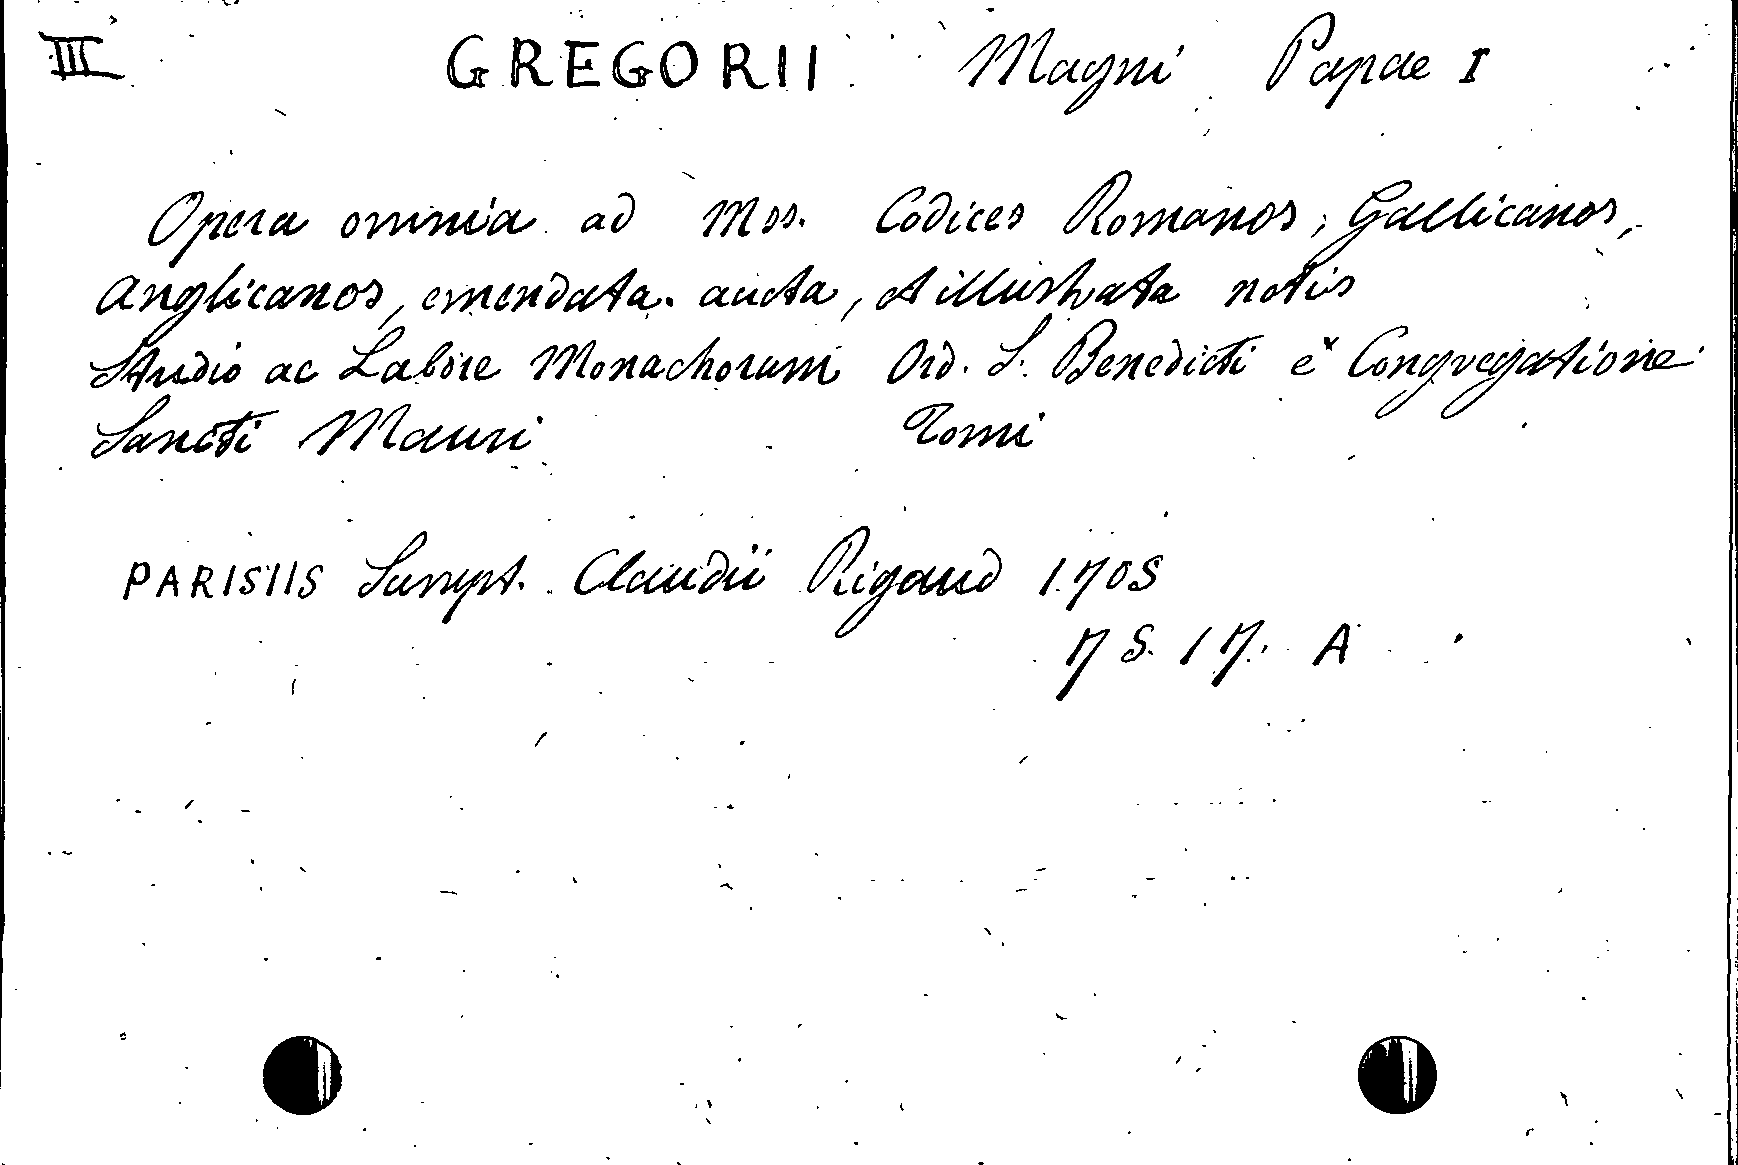 III GREGORII Magni Papae I
Opera omnia ad Mss. Codices Romanos, Gallicanos,
Anglicanos, emendata. aucta, et illustrata notis
Studio ac Labore Monachorum Ord. S. Benedicti ex Congregatione
Sancti Mauri Tomi
PARISIIS Sumpt. Claudii Rigaud 1705
75.17. A